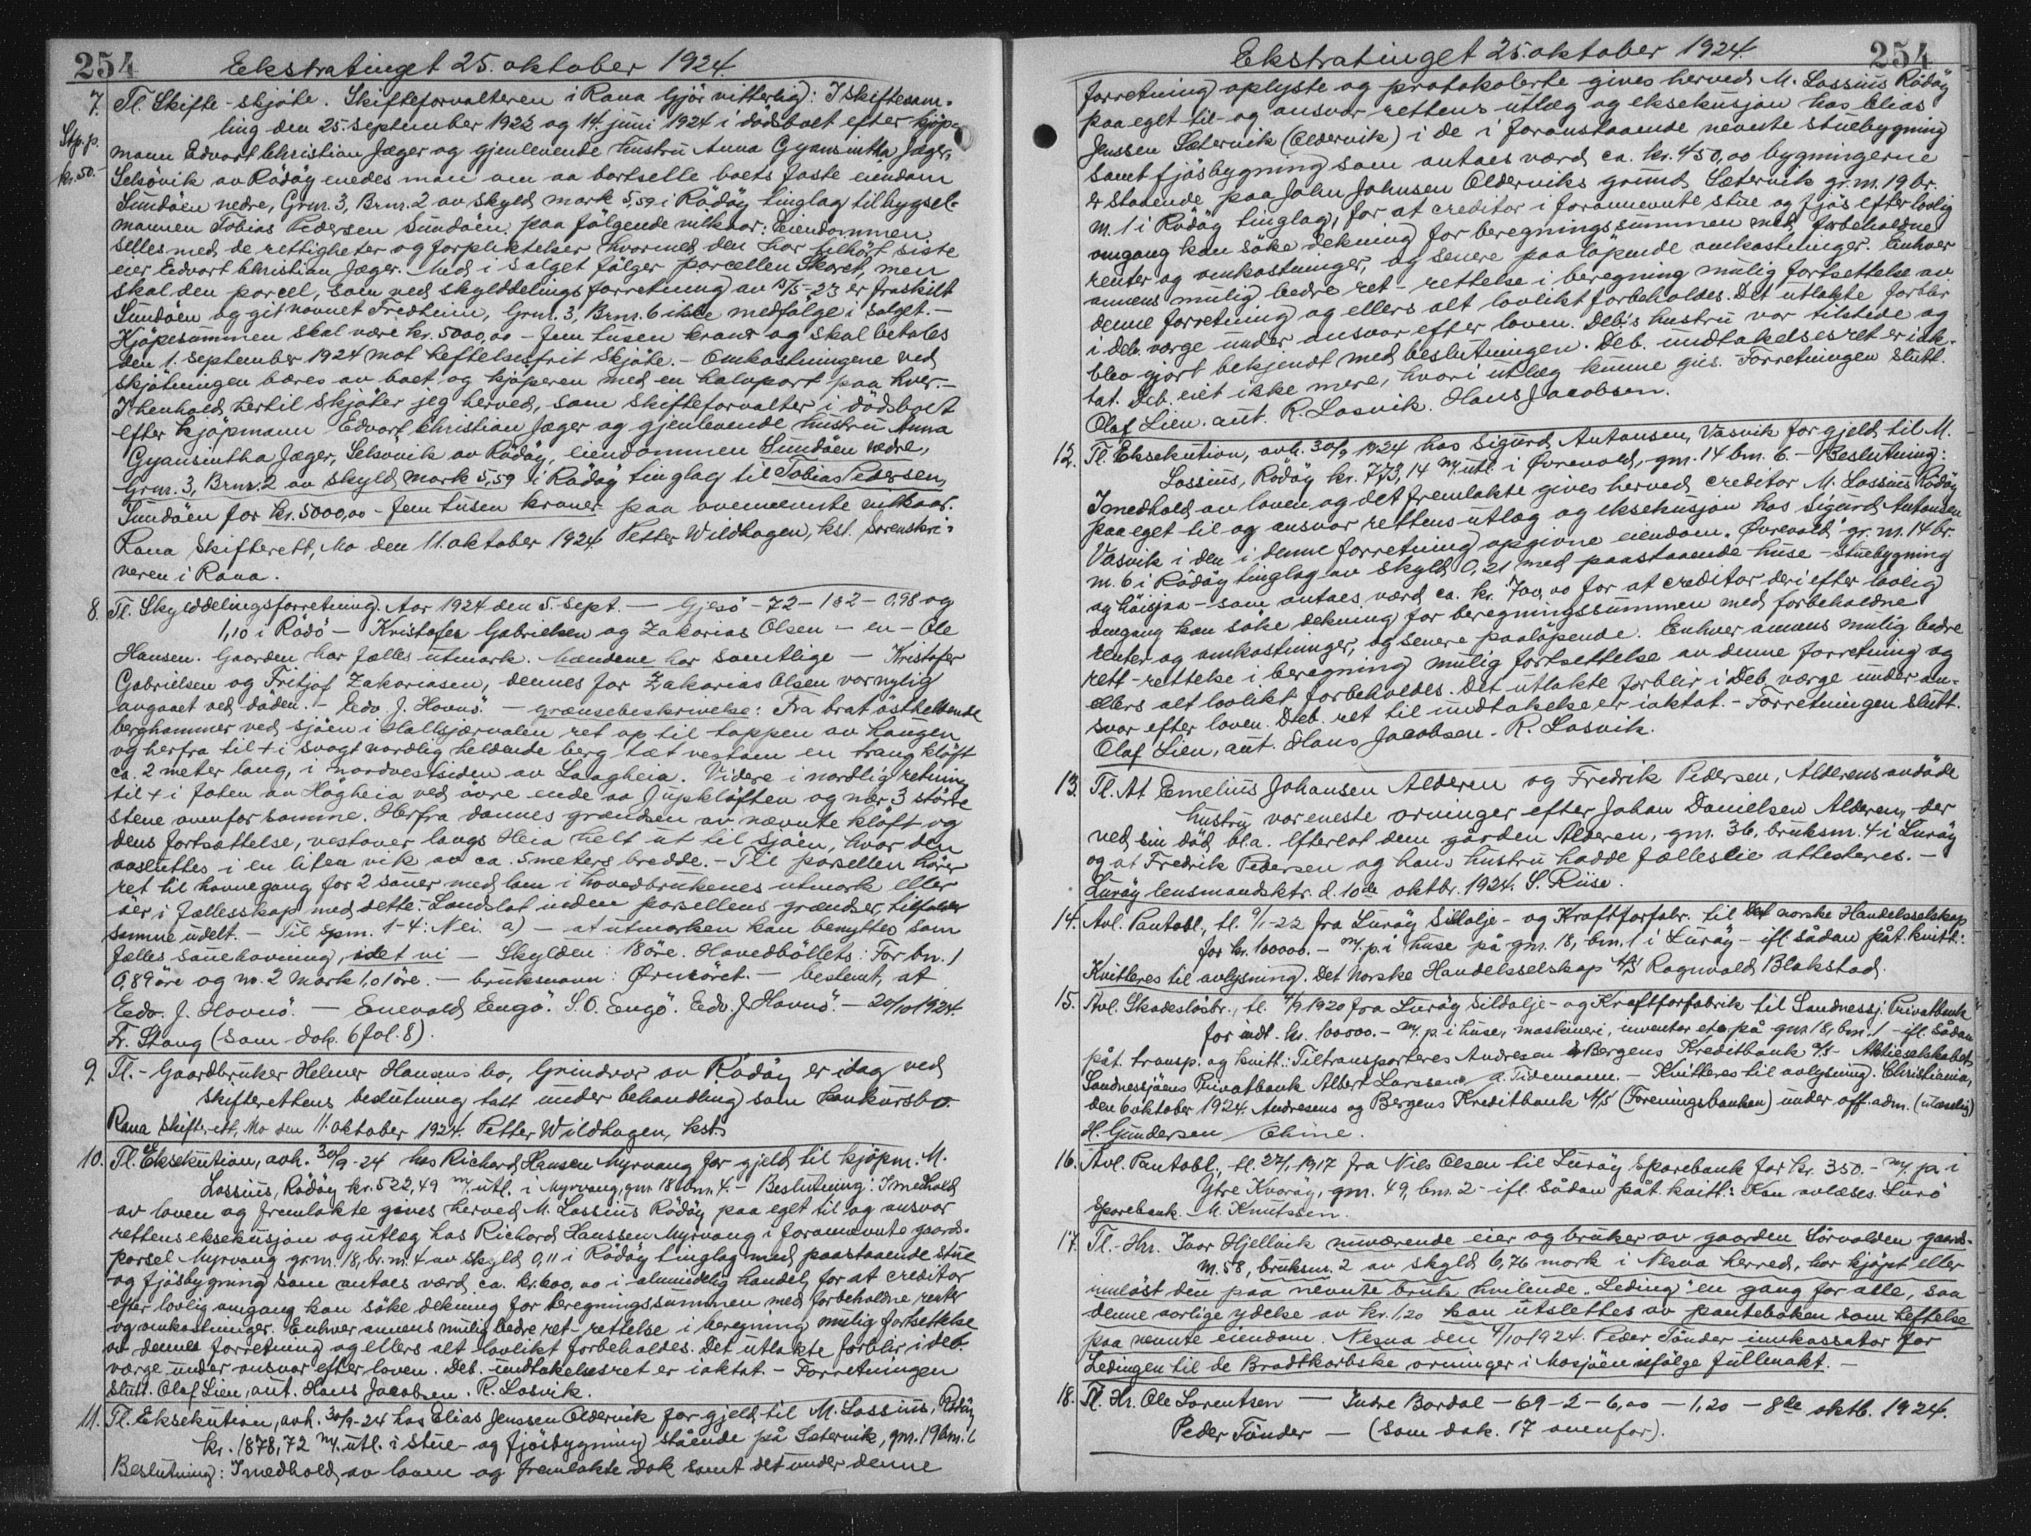 254
Ekstratinget 25. oktober 1924.
7. Tl. Skifte-skjøte. Skifteforvalteren i Rana Gjör vitterlig: I skiftesam-
Stp.p. ling den 25. september 1923 og 14. juni 1924 i dødsboet efter kjöp-
mann Edvart Christian Jæger og gjenlevende hustru Anna Gyansintha Jæger,
kr. 50.- Selsövik av Rödöy enedes man om aa bortselle boets faste eiendom
Sundöen nedre, Grnr. 3, Brnr. 2 av skyld mark 5,59 i Rödöy tinglag til bygsel-
mannen Tobias Pedersen Sundöen paa følgende vilkaar: Eiendommen
selles med de rettigheter og forpliktelser hvormed den har tilhört siste
eier Edvart Christian Jæger. Med i salget følger parcellen Skoret, men
skal den parcel, som ved skylddelingsforretning av 15/5-23 er fraskilt
Sundöen og git navnet Fredheim, Grnr. 3, Brnr. 6 ikke medfølge i salget.-
Kjöpesummen skal være kr. 5000,00 - fem tusen kroner og skal betales
den 1. september 1924 mot heftelsesfrit skjöte. - Omkostningene ved
skjötningen bæres av boet og kjöperen med en halvpart paa hver.-
I henhold hertil skjöter jeg herved, som skifteforvalter i dödsboet
efter kjöpmann Edvart Christian Jæger og gjenlevende hustru Anna
Gyansintha Jæger, Selsövik av Rödöy, eiendommen Sundöen nedre,
Grnr. 3, Brnr. 2 av skyld mark 5,59 i Rödöy tinglag til Tobias Pedersen,
Sundöen for kr. 5000,00 - fem tusen kroner paa ovennevnte vilkaar.
Rana Skifterett, Mo den 11. oktober 1924 Petter Wildhagen, kst. Sorenskri-
veren i Rana.
8. Tl. Skylddelingsforretning. Aar 1924 den 5. sept. - Gjesö - 72 - 1 o 2 - 0,98 og
1,10 i Rödö - Kristofer Gabrielsen og Zakarias Olsen - en - Ole
Hansen. Gaarden har fælles utmark. Mændene har samtlige - Kristofer
Gabrielsen og Fritjof Zakariasen, dennes far Zakarias Olsen var nylig
avgaaet ved döden. - Edv. J. Hovnö. - grænsebeskrivelse: Fra brat östheldende
berghammer ved sjöen i Hallsjærvalen ret op til toppen av Haugen
og herfra til + i svagt nordlig heldende berg tæt vestom en trang klöft
ca. 2 meter lang, i nordvestsiden av Laagheia. Videre i nordlig retning
til + i foten av Högheia ved övre ende av Jupklöften og nær 3 större
stene ovenfor samme. Herfra dannes grændsen av nævnte klöft og
dens fortsættelse, vestover langs Heia helt ut til sjöen, hvor den
avsluttes i en liten vik av ca. 5 meters bredde. - Til parsellen hörer
ret til havnegang for 2 sauer med lam i hovedbrukenes utmark eller
öer, i fællesskap med dette. Landslot inden parsellens grændser tilfalder
samme udelt. - Til spm. 1-4: Nei. a) - at utmarken kan benyttes som
fælles sauehavning, idet vi - Skylden: 18 öre. Hovedböllets: For bn. 1
0,89 öre og no. 2 Mark 1,01 öre. - bruksnavn: Örneöret. - bestemt, at
Edv. J. Hovnö. - Enevald Engö. S. O. Engö. Edv. J. Hovnö. - 20/10 1924.
Fr. Stang (Som dok. 6 fol. 8).
9. Tl. - Gaardbruker Helmer Hansens bo, Grindvor av Rödöy er idag ved
skifterettens beslutning tatt under behandling som konkursbo.
Rana Skifterett, Mo den 11. oktober 1924. Petter Wildhagen, kst.
10. Tl. Eksekution, avh. 30/9-24 hos Richard Hansen Myrvang for gjeld til kjöpm. M.
Lossius, Rödöy kr. 522,49 m/utl. i Myrvang, gnr. 18 bnr. 4. - Beslutning: I medhold
av loven og fremlakte gives herved M. Lossius Rödöy paa eget til og ansvar
rettens eksekusjon og utlæg hos Richard Hanssen Myrvang i forannevnte gaards-
parsel Myrvang gr.nr. 18, br.nr. 4 av skyld 0,11 i Rödöy tinglag med paastaaende stue
og fjösbygning som antaes værd ca. kr. 600,00 i almindelig handel, for at creditor
efter lovlig omgang kan söke dekning for beregningssummen med forbeholdne renter
og omkostninger. Enhver annens mulig bedre ret - rettelse i beregning mulig fortsettelse
av denne forretning og ellers alt lovlikt forbeholdes. Det utlakte forblir i deb.
værge under ansvar efter loven. Deb. undtakelsesret er iaktat. - Forretningen
slutt. Olaf Lien, aut. Hans Jacobsen. R. Losvik.
11. Tl. Eksekution, avh. 30/9-24 hos Elias Jenssen Oldervik for gjeld til M. Lossius, Rödöy
kr. 1878,72 m/utl. i Stue- og fjösbygning stående på Sætervik, gnr. 19 bnr. 1
Beslutning: I medhold av loven og fremlakte dok samt det under denne
254
Ekstratinget 25. oktober 1924.
forretning oplyste og protokolerte gives herved M. Lossius Rödöy
paa eget til og ansvar rettens utlæg og eksekusjon hos Elias
Jenssen Sætervik (Oldervik) i de i foranstaaende nevnte stuebygning
samt fjösbygning som antaes værd ca. kr. 450,00 bygningerne
er staaende paa John Johnsen Olderviks grund Sætervik gr.nr. 19 br.
nr. 1 i Rödöy tinglag, for at creditor i forannevnte stue og fjös efter lovlig
omgang kan söke dekning for beregningssummen med forbeholdne
renter og omkostninger, og senere paalöpende omkostninger. Enhver
annens mulig bedre ret - rettelse i beregning mulig fortsettelse av
denne forretning og ellers alt lovlikt forbeholdes. Det utlakte forblir
i deb. værge under ansvar efter loven. Deb.s hustru var tilstede og
blev gjort bekjendt med beslutningen. Deb. undtakelsesret er iak-
tat. Deb. eiet ikke mere, hvori utlæg kunne gis. Forretningen slutt.
Olaf Lien. aut. R. Losvik. Hans Jacobsen.
12. Tl. Eksekution, avh. 30/9 1924 hos Sigurd Antonsen, Vasvik for gjeld til M.
Lossius, Rödöy kr. 773,14 m/utl. i Øvrevold, gnr. 14 bnr. 6. - Beslutning:
I medhold av loven og det fremlakte gives herved creditor M. Lossius Rödöy
paa eget til og ansvar rettens utlæg og eksekusjon hos Sigurd Antonsen
Vasvik i den i denne forretning opgivne eiendom "Øvrevold" gr.nr. 14 br.
nr. 6 i Rödöy tinglag av skyld 0,21 med paastaaende huse - stuebygning
og höisjaa - som antaes værd ca. kr. 700,00 for at creditor deri efter lovlig
omgang kan söke dekning for beregningssummen med forbeholdne
renter og omkostninger, og senere paalöpende. Enhver annens mulig bedre
rett - rettelse i beregning mulig fortsettelse av denne forretning og
ellers alt lovlikt forbeholdes. Det utlakte forblir i Deb. værge under an-
svar efter loven. Deb. ret til undtakelse er iaktat. - Forretningen slutt.
Olaf Lien, aut. Hans Jacobsen. R. Losvik.
13. Tl. At Emelius Johansen Alderen og Fredrik Pedersen, Alderens avdöde
hustru var eneste arvinger efter Johan Danielsen Alderen, der
ved sin död bl.a. Efterlot dem gården Alderen, gnr. 36, bruksnr. 4 i Luröy
og at Fredrik Pedersen og hans hustru hadde fælleseie attesteres. -
Luröy lensmandsktr. d. 10de oktbr. 1924. S. Riise.
14. Avl. Pantobl., tl. 9/1-22 fra Luröy Sildolje- og Kraftforfabr. til Det norske Handelsselskap
for kr. 100000. - m/p. i huse på gnr. 18, bnr. 1 i Luröy - ifl. sådan påt. kvitt:
Kvitteres til avlysning. Det Norske Handelsselskap A/S Ragnvald Blakstad.
15. Avl. Skadeslösbr., tl. 4/9 1920 fra Luröy Sildolje- og Kraftforfabrik til Sandnessj. Privatbank
for indt. kr. 100000. - m/p. i huse, maskineri, inventar etc. på gnr. 18, bnr. 1 - ifl. sådan
påt. transp. og kvitt.: Tiltransporteres Andresens & Bergens Kreditbank A/S - Aktieselskabet
Sandnessjöens Privatbank Albert Larssen A. Tidemann. - Kvitteres til avlysning. Christiania,
den 6 oktober 1924. Andresens og Bergens Kreditbank A/S (Foreningsbanken) under off. adm. (ulæselig)
H. Gundersen
16. Avl. Pantobl., tl. 27/1 1917 fra Nils Olsen til Luröy Sparebank for kr. 350. - m/p. i
Ytre Kvaröy, gnr. 49, bnr. 2 - ifl. sådan påt. kvitt: Kan avlæses. Lurö
Sparebank. M. Knutssen.
17. Tl. - Hr. Ivar Hjellvik nuværende eier og bruker av gaarden Sörvolden gaards-
nr. 58, bruksnr. 2 av skyld 6,76 mark i Nesna herred, har kjöpt eller
innlöst den paa nevnte bruk hvilende "Leding" en gang for alle, saa
denne aarlige ydelse av kr. 1,20 kan utslettes av panteboken som heftelse
paa nevnte eiendom. Nesna den 9/10 1924. Peder Tönder innkassator for
Ledingen til de Brodtkorbske arvinger i Mosjöen ifölge fullmakt. -
18. Tl. Hr. Ole Lorentsen - Indre Bardal - 69 - 2 - 6,00 - 1,20 - 8de oktb. 1924.
Peder Tönder - (Som dok. 17 ovenfor).